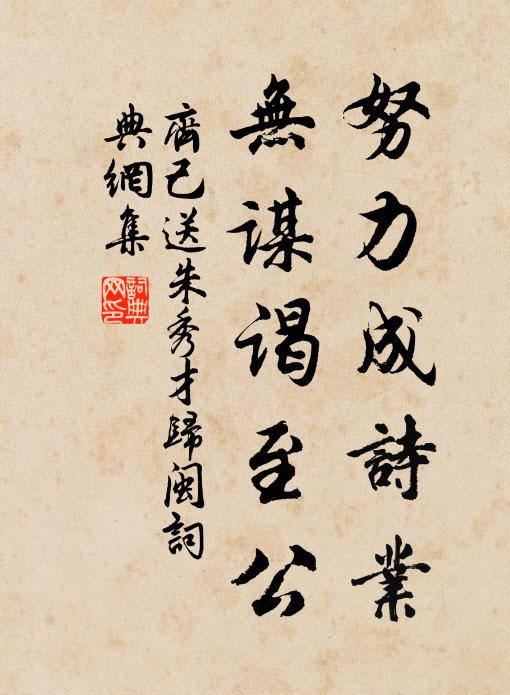 努力成詩業
無謀謁至公
齊己送朱秀才歸閩詞
典網集
詞典網印